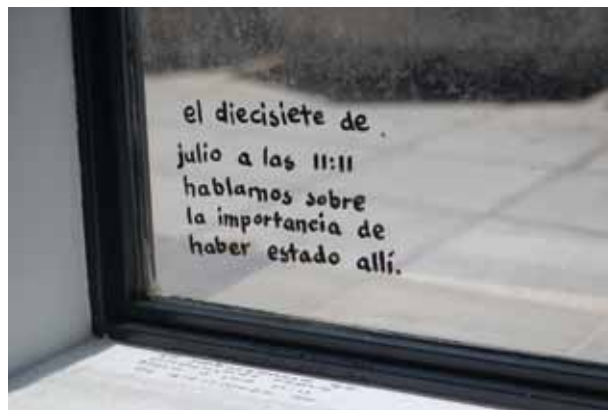 el diecisiete de
julio a las 11:11
hablamos sobre
la importancia de
haber estado allí.